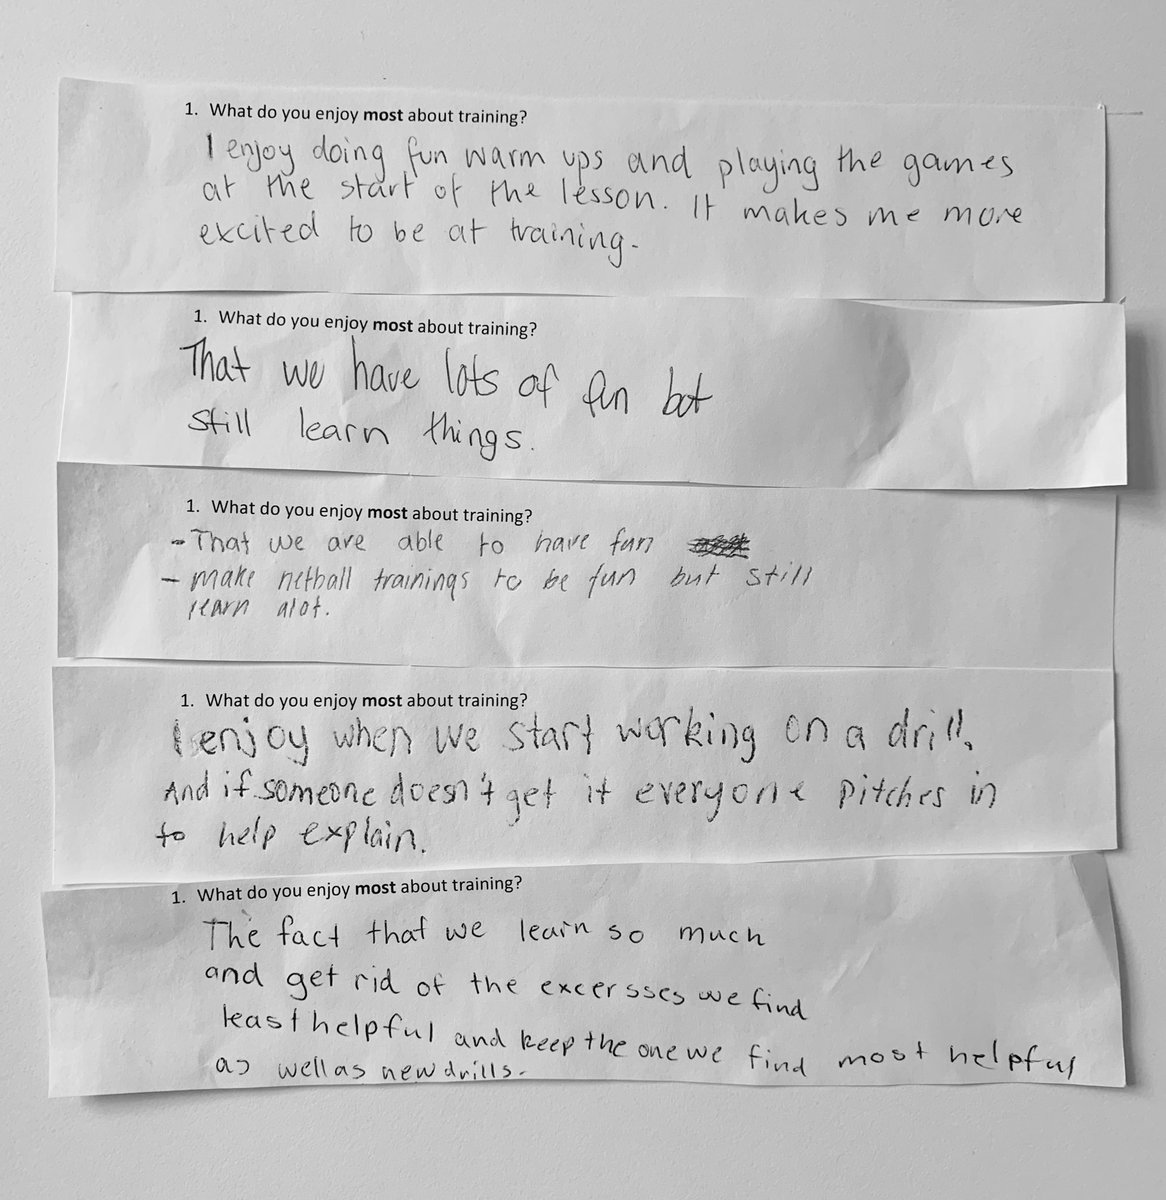 1. What do you enjoy most about training?
I enjoy doing fun warm ups and playing the games
at the start of the lesson. It makes me more
excited to be at training.
1. What do you enjoy most about training?
That we have lots of fun bot
still learn things.
1. What do you enjoy most about training?
- That we are able to have fun
- make netball trainings to be fun but still
learn alot.
1. What do you enjoy most about training?
I enjoy when we start working on a drill.
And if someone doesn't get it everyone pitches in
to help explain.
1. What do you enjoy most about training?
The fact that we learn so much
and get rid of the excersses we find
least helpful and keep the one we find most helpful
as well as new drills.